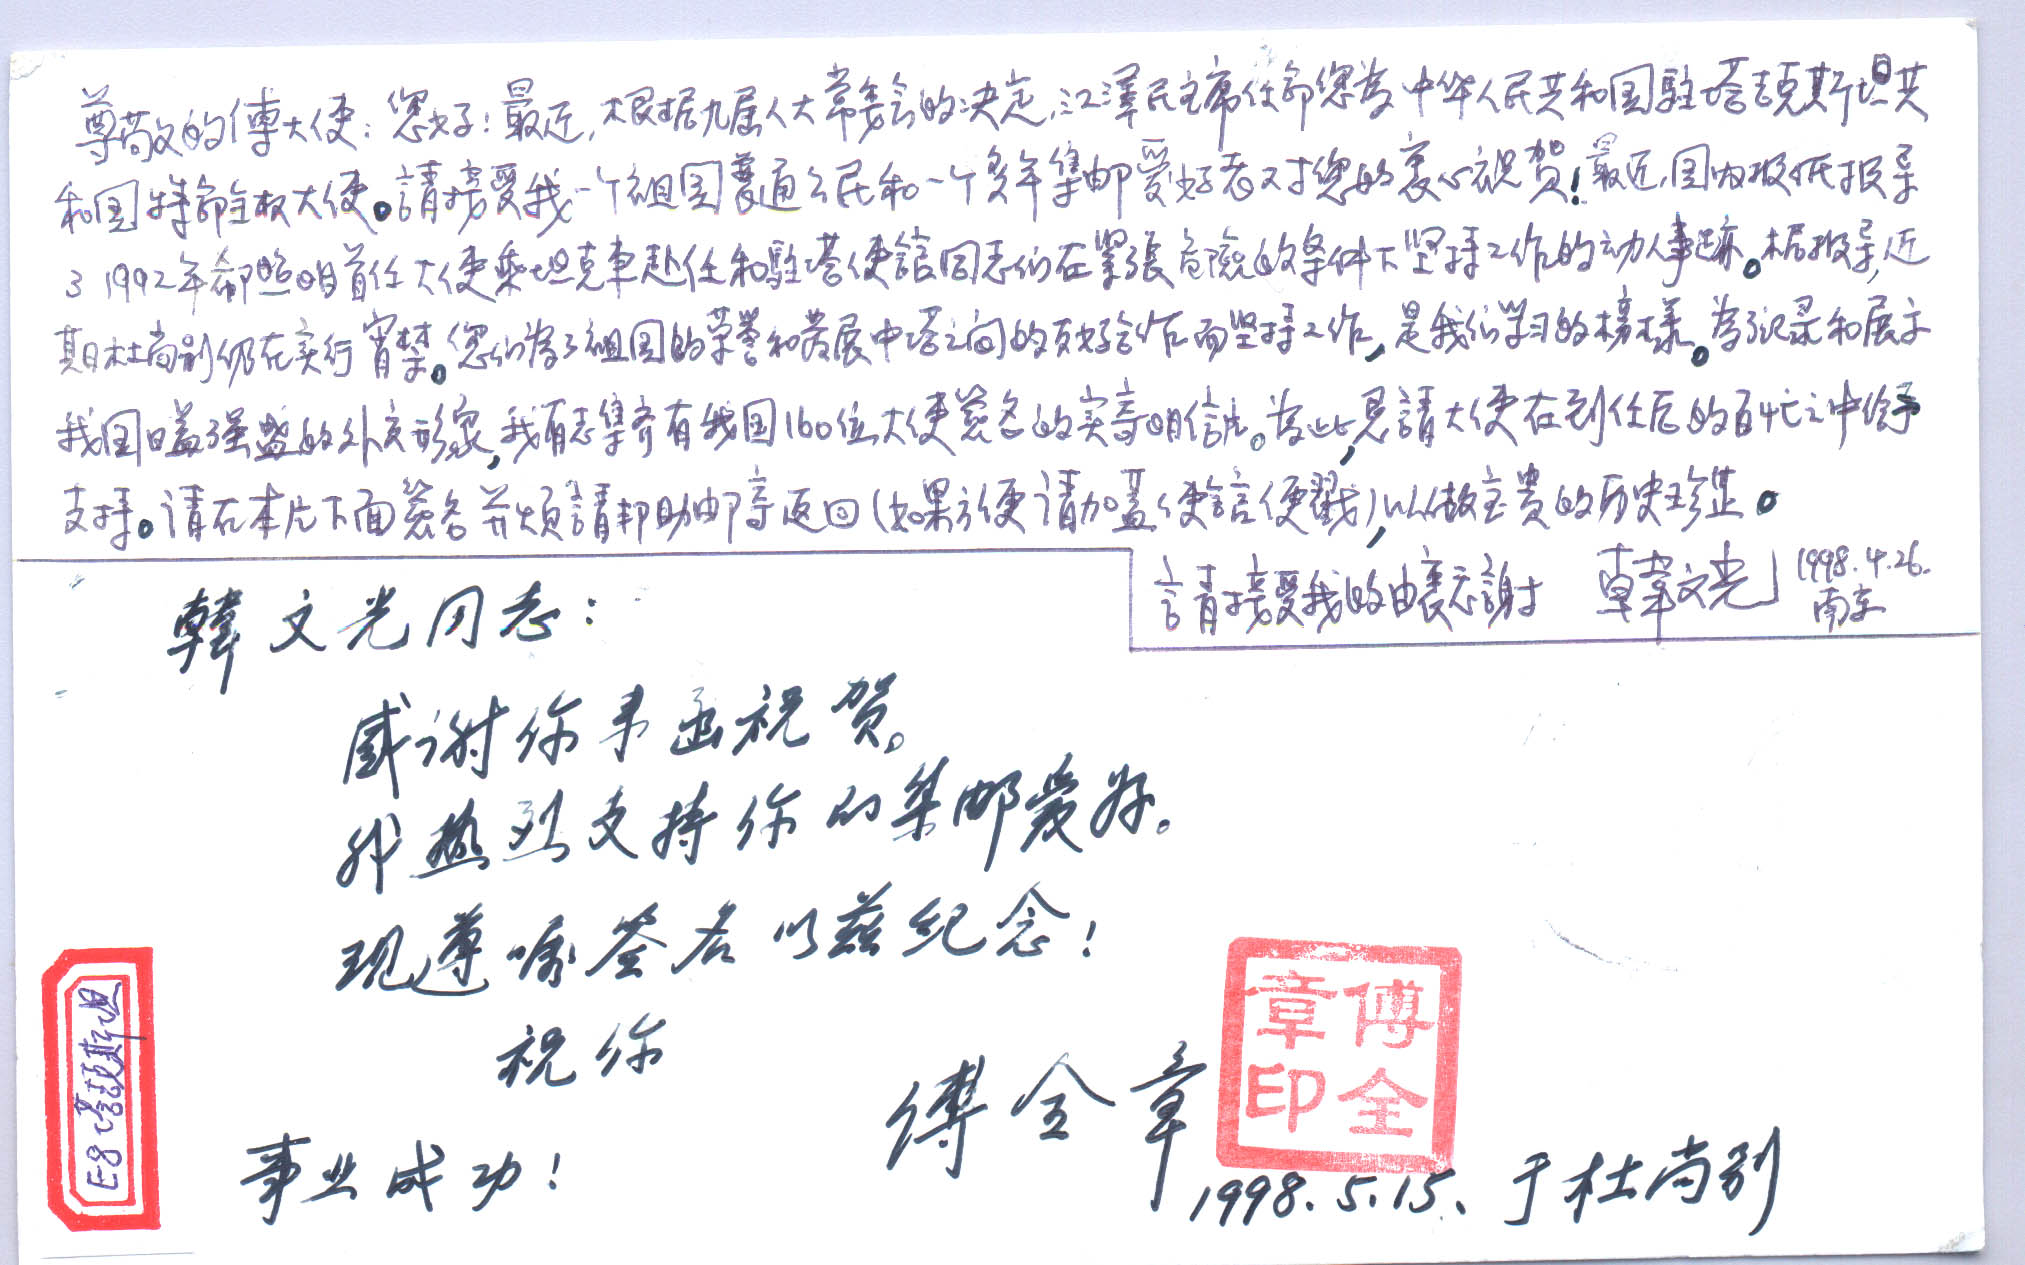 尊敬的傅大使：您好！最近，根据九届人大常委会的决定，江澤民主席任命您為中华人民共和国駐塔吉克斯坦共
和国特命全权大使。請接受我一个祖国普通公民和一个多年集邮爱好者对您的衷心祝贺！最近，国内报纸报导
了1992年郗照明首任大使乘坦克車赴任和駐塔使館同志们在緊張危險的条件下坚持工作的动人事迹。据报导，近
期杜尚别仍在实行宵禁。您们為了祖国的荣誉和发展中塔之间的友好合作而坚持工作，是我们学习的榜樣。為了记录和展示
我国日益强盛的外交形象，我有志集齐有我国160位大使签名的实寄明信片。為此，恳請大使在到任后的百忙之中给予
支持。请在本片下面签名并烦請邦助邮寄返回（如果方便请加蓋使館便戳），以做宝贵的历史珍芷。
請接受我的由衷感謝 韓文光
1998.4.26.
南京
韓文光同志：
感谢你来函祝贺。
我热烈支持你的集邮爱好。
现遵嘱签名以兹纪念！
祝你
事业成功！
傅全章
傅全章印
1998.5.15、于杜尚别
E-8 塔吉克斯坦